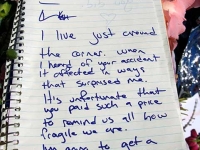 I live just around
the corner. When
I heard of your accident
it affected in ways
that surprised me.
It's unfortunate that
you paid such a price
to remind us all how
fragile we are.
to get a